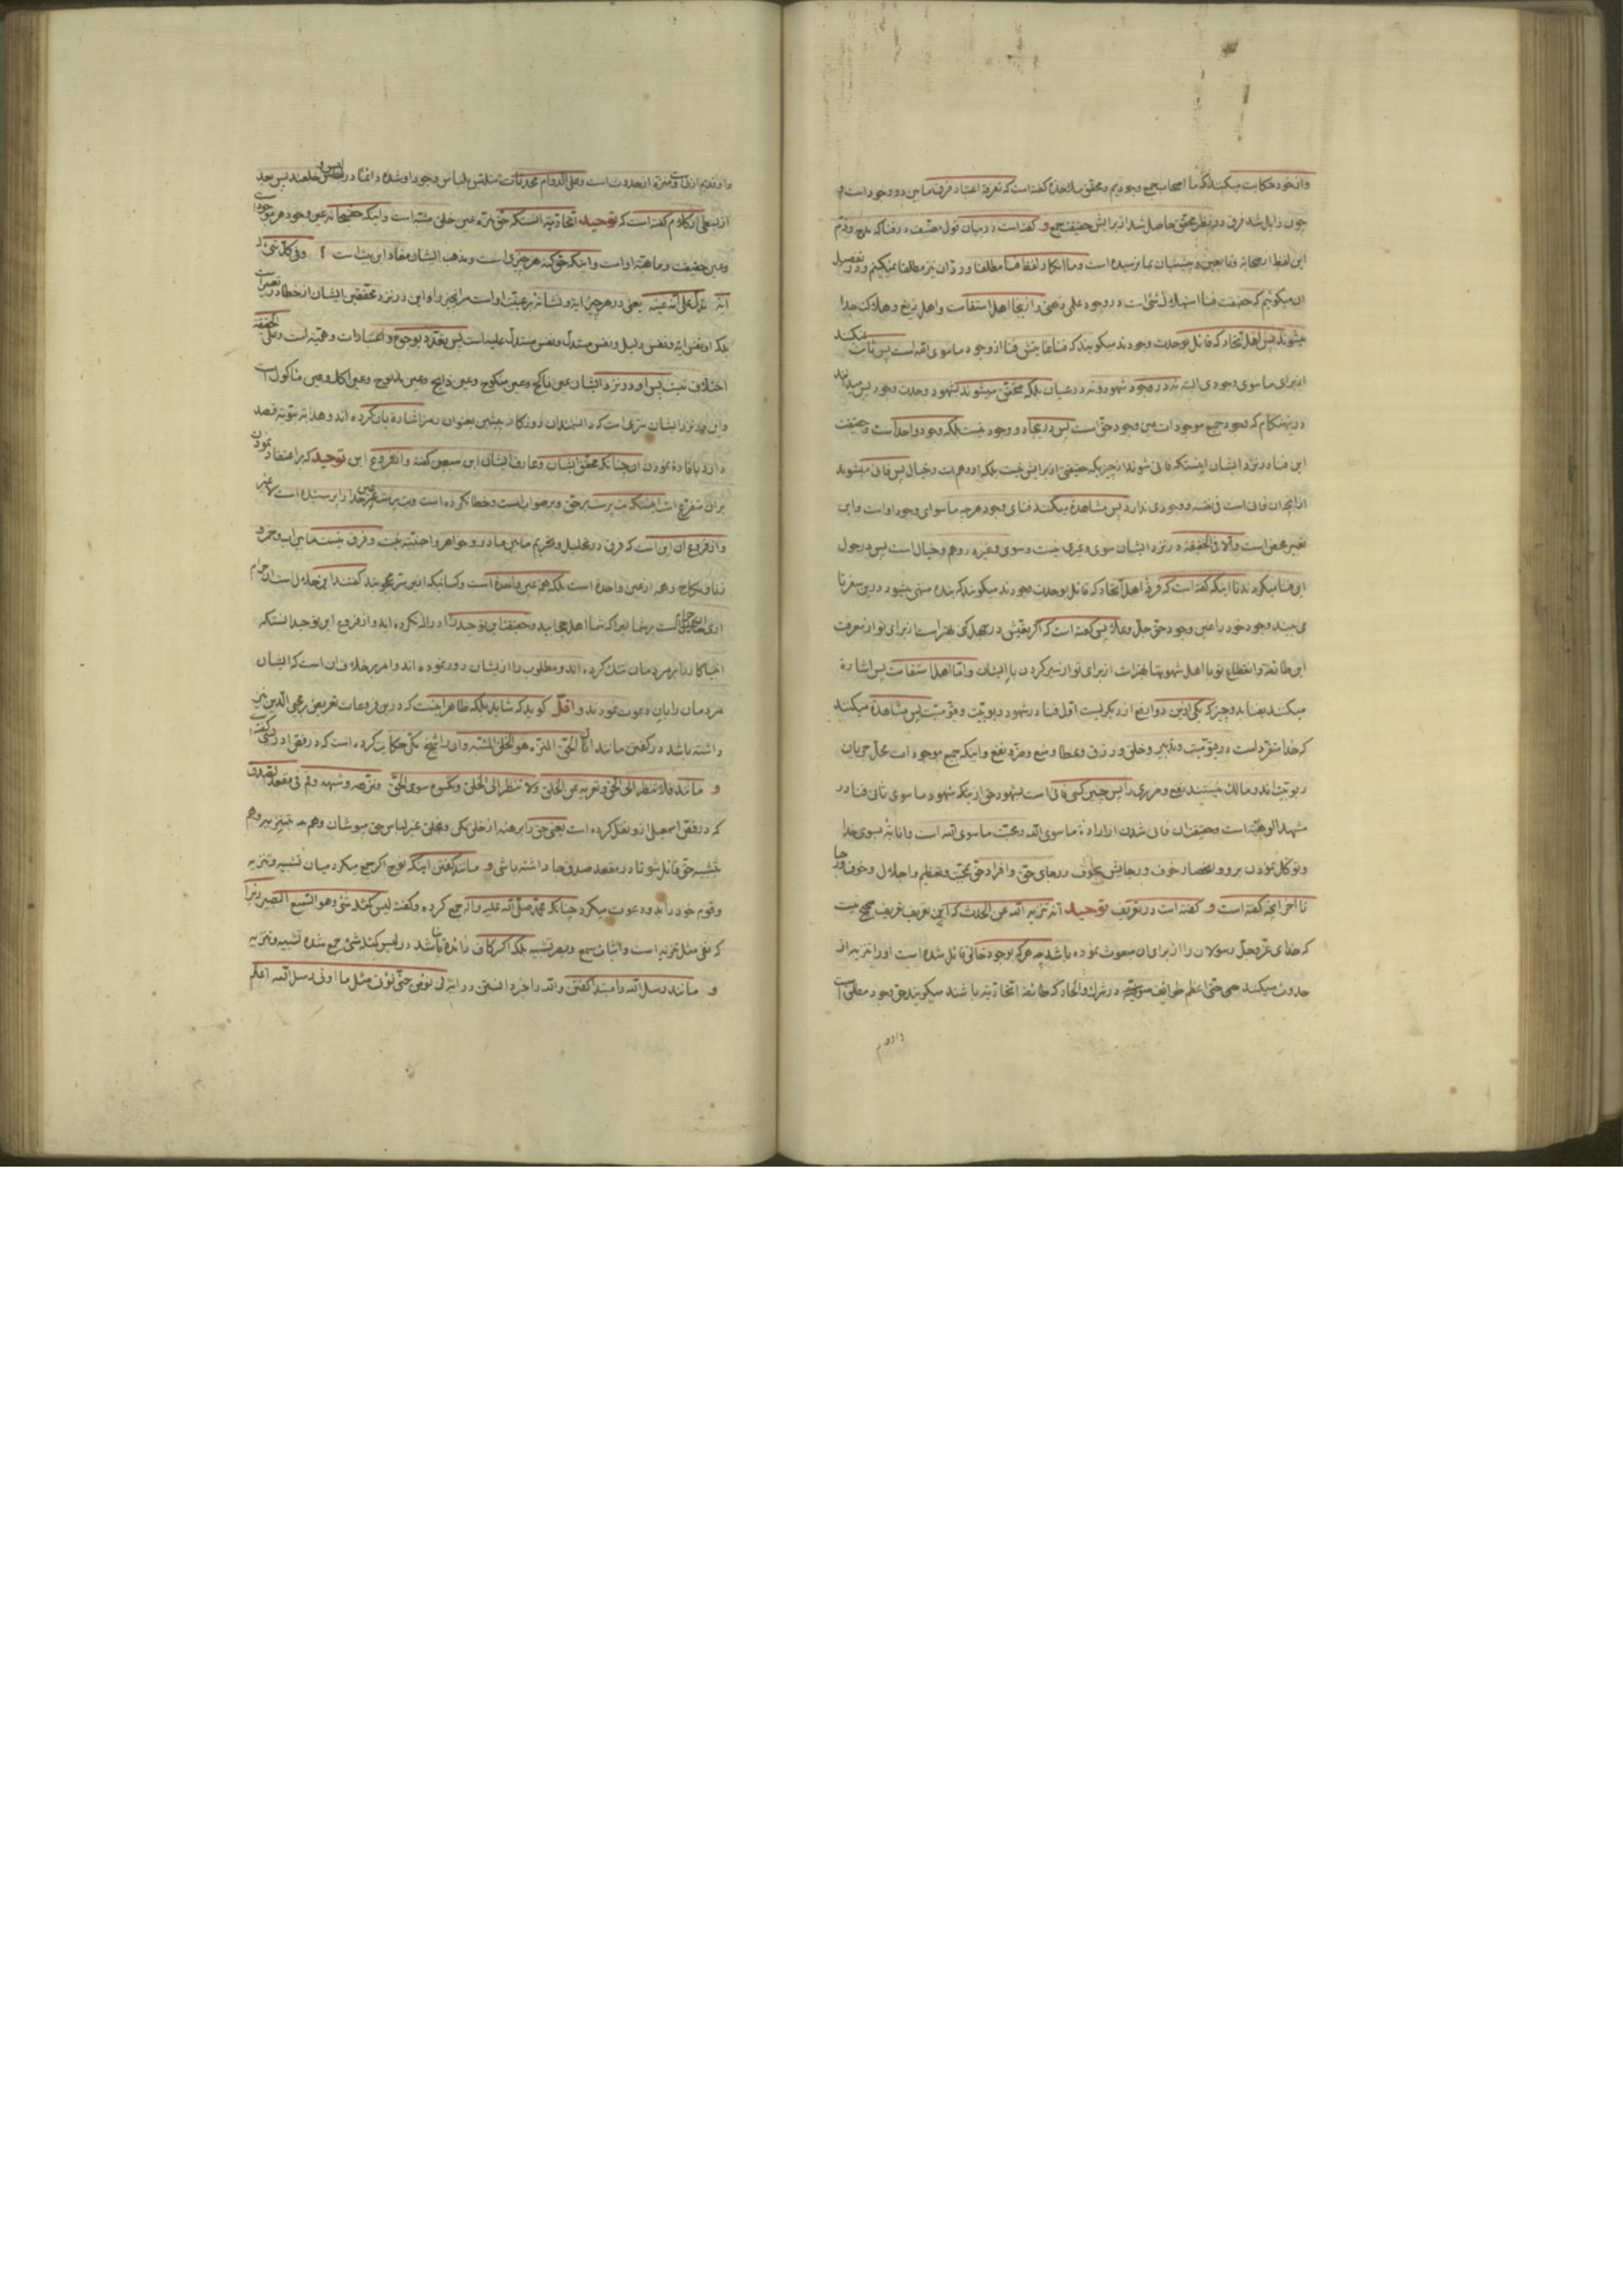 وازخود حکایت میکنند که ما اصحاب جمع وجودیم ومحقق گفته است که تفرقه اعتقاد فرق مابین دو وجود است
چون زایل شد فرق در نظر محقق حاصل شد از برایش حقیقت جمع و گفته است در میان قول مصنف در فنا که مدح وذم
این لفظ از صحابه وتابعین وپیشینیان بما نرسیده است وما انکار لفظ فنا مطلقا ورد آن نیز مطلقا نمیکنیم ودر تفصیل
آن میگوئیم که حقیقت فنا استهلاک شئ است در وجود علمی ذهنی واز اینجا اهل استقامت واهل زیغ وهلاک جدا
میشوند پس اهل اتحاد که قائل بوحدت وجودند میگویند که فنا غایتش فنا از وجود ماسوی الله است پس ثابت نمیکنند
از برای ماسوی وجودی البته نه در وجود شهود ونه در عیان بلکه محقق میشوند بشهود وحدت وجود پس میدانند
در این هنگام که وجود جمیع موجودات عین وجود حق است پس در اینجا دو وجود نیست بلکه وجود واحد است وحقیقت
این فنا در نزد ایشان اینستکه فانی شوند از چیزیکه حقیقتی از برایش نیست بلکه او وهم است وخیال پس فانی میشوند
از آنچه آن فانی است فی نفسه ووجودی ندارد پس مشاهده میکنند فنای وجود هرچه ماسوای وجود او است واین
تعبیر محض است والا فی الحقیقه در نزد ایشان سوی وغیری نیست وسوی وغیر در وهم وخیال است پس در حول
این فنا میگردند تا اینکه گفته است که فرقه اهل اتحاد که قائل بوحدت وجودند میگویند که بنده منتهی میشود در این سفر تا
می بیند وجود خود را عین وجود حق جل وعلا پس گفته است که اگر تعیش در جهل کنی بهتر است از برای تو از معرفت
این طائفه وانقطاع تو با اهل شهوتها بهتر است از برای تو از سیر کردن با ایشان واما اهل استقامت پس اشاره
میکنند بفنا بدو چیز که یکی از این دو ارفع از دیگریست اول فنا در شهود ربوبیت وقیومیت پس مشاهده میکنند
که خدا متفرد است در قیومیت وتدبیر وخلق ورزق وعطا ومنع وضر ونفع واینکه جمیع موجودات محل جریان
ربوبیت اند ومالک نیستند نفع وضرری را پس چنین کسی فانی است بشهود حق از اینکه شهود ماسوی ثانی فنا در
مشهد الوهیت است وحقیقت آن فانی شدن از اراده ماسوی الله ومحبت ماسوی الله است وانابه بسوی خدا
وتوکل نمودن بر او وانحصار خوف ورجایش بخوف ورجای حق وافراد حق بمحبت وتعظیم واجلال وخوف ورجا
تا آخر آنچه گفته است و گفته است در تعریف توحید انه تنزیه الله عن الحدث که این تعریف تعریف صحیح نیست
که خدای عز وجل رسولان را از برای آن مبعوث نموده باشد چه هرکه بوجود خالق قائل شده است او را تنزیه از
حدوث میکند حتی اعظم طوایف در شرک والحاد که طائفه اتحادیه باشند میگویند حق وجود مطلق است
واو قدیم
واو قدیم ازلی ومنزه از حدوث است وعلی الدوام محدثات متلبس بلباس وجود او شده دائما در لبس وخلعند پس بعد
از بعضی از کلام گفته است که توحید اتحادیه آنستکه حق منزه عین خلق مشبه است واینکه حق سبحانه عین وجود هر موجود است
وعین حقیقت وماهیت او است واینکه حق کنه هر چیزی است ومذهب ایشان مفاد این بیت است وفی کل شئ له
آیة تدل علی انه عینه یعنی در هر چیز آیه ونشانه بر عینیت او است مر آنچیز را واین در نزد محققین ایشان از خطا در تعبیر است
بلکه او نفس آیه ونفس دلیل ونفس مستدل ونفس مستدل علیه است پس تعدد بوجوه واعتبارات وهمیه است وعلی الحقیقه
اختلاف نیست پس او در نزد ایشان عین ناکح وعین منکوح وعین ذابح وعین مذبوح وعین آکل وعین مأکول است
واین در نزد ایشان سری است که دانشمندان روزگار پیشین بعنوان رمز اشاره بآن کرده اند
دارد بافاده نمودن آن چنانکه محقق ایشان وعارف ایشان ابن سبعین گفته واز فروع این توحید که بر اعتقاد نمودن
بر آن متفرع است اینستکه بت پرست بر حق وبر صواب است وخطا نکرده است وبت پرست عین خدا را پرستیده است لا غیر
واز فروع آن این است که فرق در تحلیل وتحریم مابین مادر وخواهر واجنبیه نیست وفرق نیست مابین آب وخمر و
زنا ونکاح وهمه از عین واحده است بلکه همه عین واحده است وکسانیکه از این سر محجوبند گفتند این حلال است این حرام
آری حرام است بر شما زیرا که شما اهل حجابید وحقیقت این توحید را ادراک نکرده اید واز فروع این توحید آنستکه
انبیا کار را بر مردمان تنگ کرده اند ومطلوب را از ایشان دور نموده اند وامر بر خلاف آن است که ایشان
مردمان را بآن دعوت نمودند و اقل گوید که شاید بلکه ظاهر اینست که در این فروعات تعریض بر محی الدین نیز
داشته باشد در گفتن مانند ان الحق المنزه هو الخلق المشبه وآن را شیخ مکی حکایت کرده است که در فص ادریسی گفته است
و مانند فلا تنظر الی الحق وتعریه عن الخلق ولا تنظر الی الخلق وتکسوه سوی الحق ونزهه وشبهه وقم فی مقعد الصدق
که در فص اسمعیل از او نقل کرده است یعنی حق را برهنه از خلق مکن وبخلق غیر لباس حق مپوشان وهم بتنزیه وهم
بتشبیه حق قائل شو تا در مقعد صدق جا داشته باشی و مانند گفتن اینکه نوح اگر جمع میکرد میان تشبیه وتنزیه
وقوم خود را بدو دعوت میکرد چنانکه محمد صلی الله علیه وآله جمع کرده وگفته لیس کمثله شئ وهو السمیع البصیر زیرا
که نفی مثل تنزیه است واثبات سمع وبصر تشبیه بلکه اگر کاف زائده نباشد در لیس کمثله شئ جمع شده تشبیه وتنزیه
و مانند رسل الله را مبتدا گفتن والله را خبر دانستن در آیه لن نؤمن حتی نؤتی مثل ما اوتی رسل الله الله اعلم